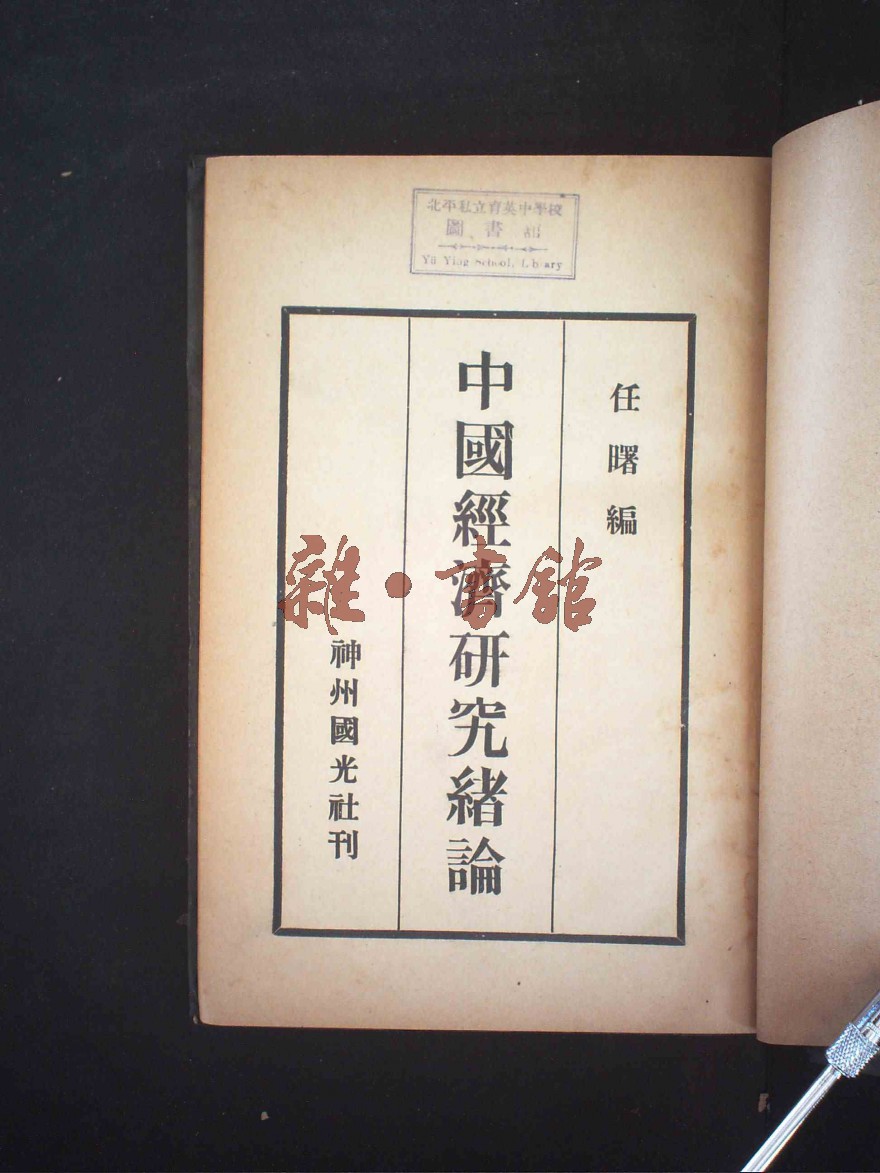 北平私立育英中學校
圖書館
Yü Ying School, Library
任曙編
中國經濟研究緒論
神州國光社刊
雜·書館